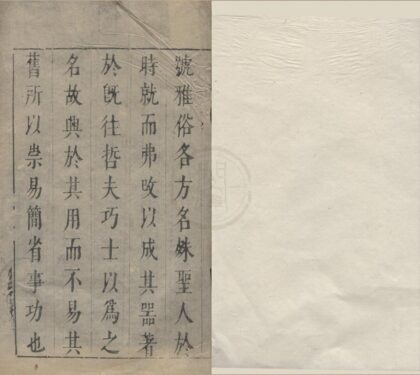 號雅俗各方名姝聖人於
時就而弗改以成其器著
於既往哲夫巧士以爲之
名故興於其用而不易其
舊所以崇易簡省事功也